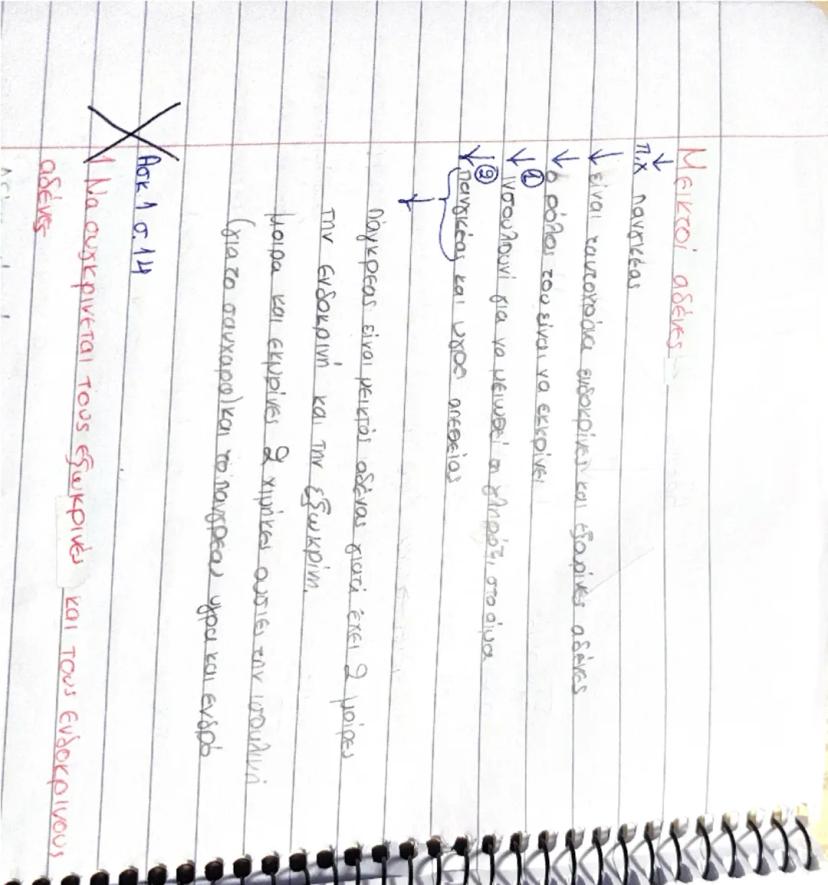 Μεικτοί αδένες
π.χ πανγκέας
είναι ταυτοχρόνα ενδοκρινές και εξοκρινές αδένες
ο ρόλος του είναι να εκκρίνει
① ινσουλουνί για να μειωθεί στο αίμα
② πανγκέας και υγρος
Πάγκρεας είναι μεικτός αδένας γιατί έχει 2 μοίρες
την ενδοκρινή και την εξωκρίνη.
μοιρα και εκκρίνες 2 χιμηκες ουσιες την ισουλινή
(για το σαυχαρο) και το πανγρεας υγρα και ενδρο
Ασκ 1 σ.14
1 Να συγκρίνεται τους εξωκρινές και τους ενδοκρινους
αδένες